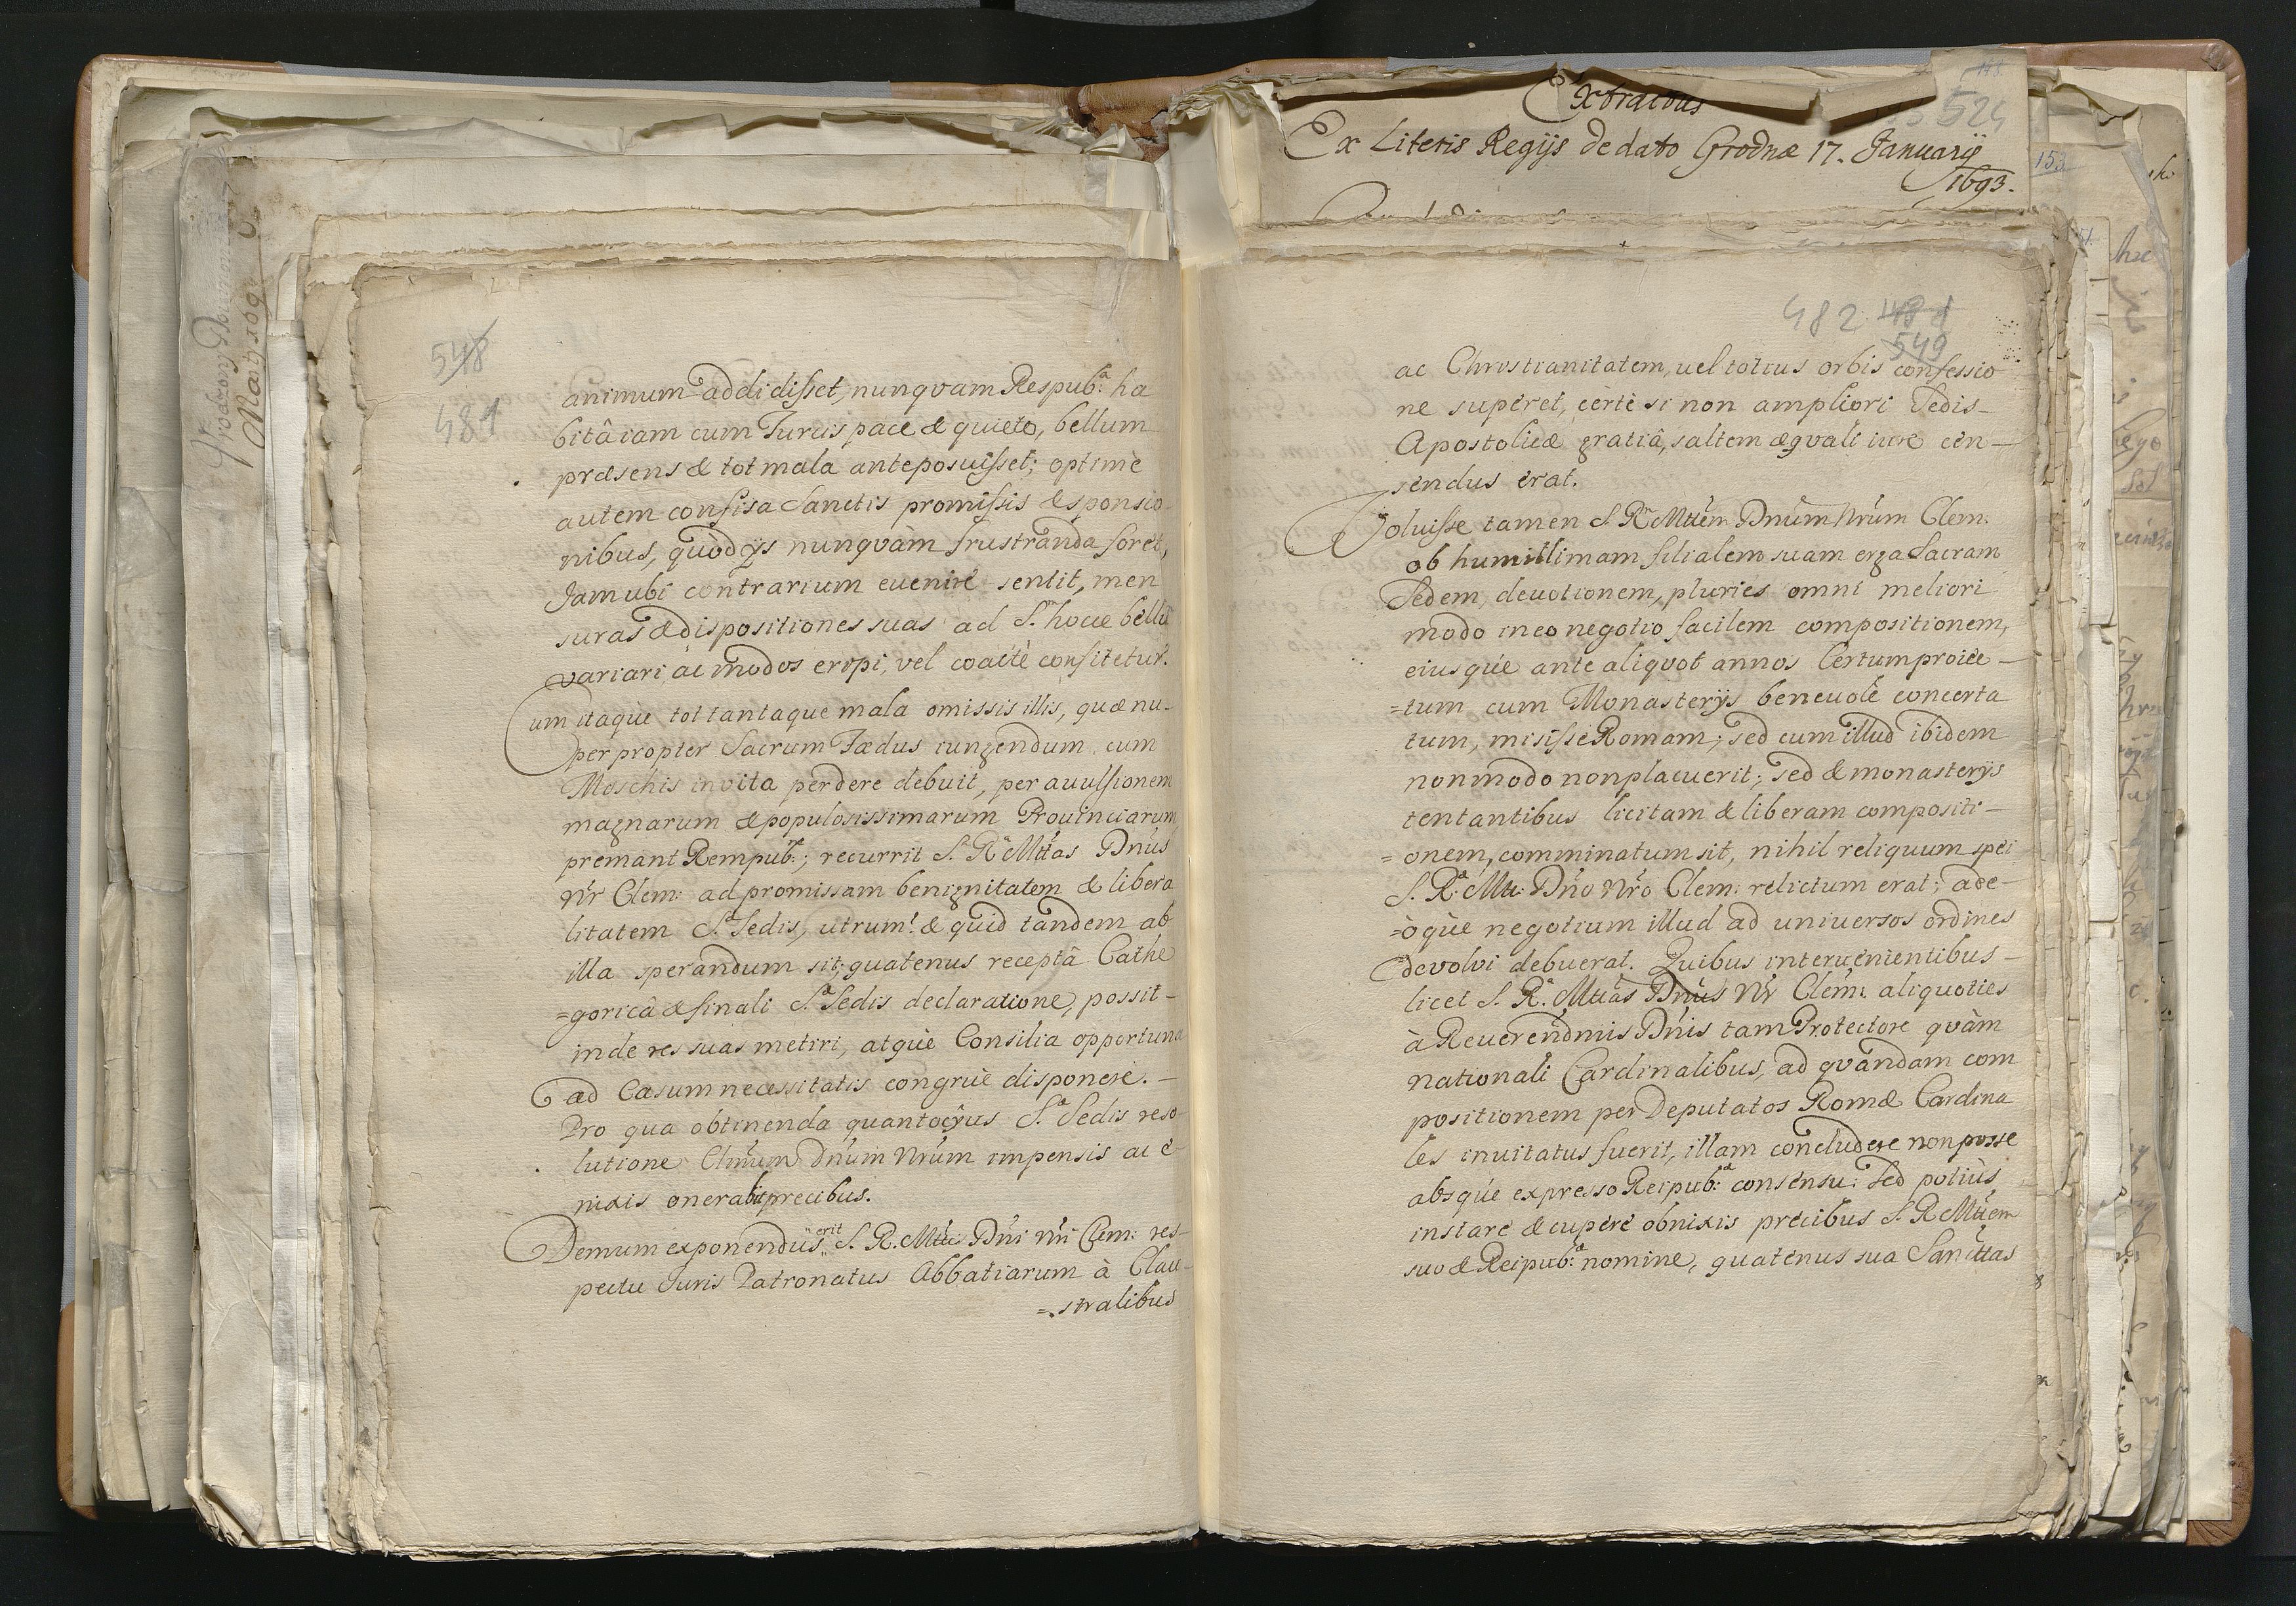 548
481
animum addidisset, nunquam Respub:ᵃ ha
bitâ iam cum Turcis pace & quiete, bellum
præsens & tot mala anteposuisset; optimè
autem confisa Sanctis promissis & sponsio
nibus, quòd ijs nunquàm frustranda foret,
Jam ubi contrarium euenire sentit, men
suras & dispositiones suas ad S. hocce bellū
variari, ac modos eripi, vel coactè confitetur.
Cum itaque tot tantaque mala omissis illis, quæ nu-
per propter Sacrum Fœdus iungendum cum
Moschis invita perdere debuit, per auulsionem
magnarum & populosissimarum Prouinciarum
premant Rempub:; recurrit S. Rᵃ Mttas Dnus
Nr Clem: ad promissam benignitatem & libera
litatem S.ᵃ Sedis, utrum & quid tandem ab
illa sperandum sit; quatenus receptâ Cathe
=goricâ & finali S.ᵃ Sedis declaratione, possit-
inde res suas metiri, atque Consilia opportuna
ad Casum necessitatis congruè disponere.-
Pro qua obtinenda quantocyus S.ᵃ Sedis reso-
lutione Dnum Nrum impensis ac e-
nixis onerabit precibus.
Demum exponendū erit S. R. Mttis Dni Nri Clem: res-
pectu Juris Patronatus Abbatiarum à Clau-
=stralibus
Extractus
Ex Literis Regijs de dato Grodnæ 17. Januarij
1693.
524
482
549
ac Christianitatem, uel totius orbis confessio
ne superet, certè si non ampliori Sedis-
Apostolicæ gratiâ, saltem æquali iure cen-
sendus erat.
Voluisse tamen S. R. Mttem Dnum Nrum Clem:
ob humillimam filialem suam erga Sacram
Sedem, deuotionem, pluries omni meliori
modo in eo negotio facilem compositionem,
eiusque ante aliquot annos Certum proiec-
=tum cum Monasterijs beneuolè concerta
tum, misisse Romam; sed cum illud ibidem
non modo non placuerit; sed & monasterijs
tentantibus licitam & liberam compositi-
=onem, comminatum sit, nihil reliquum spei
S. Rᵃ: Mtti: Dno Nro Clem: relictum erat; ade-
=òque negotium illud ad universos ordines
devolvi debuerat. Quibus interuenientibus-
licet S. Rᵃ. Mttas Dnus Nr Clem: aliquoties
à Reuerendmis Dnis tam Protectore quàm
nationali Cardinalibus, ad quandam com
positionem per Deputatos Romæ Cardina
les inuitatus fuerit, illam concludere non posse
absque expresso Reipub:ᵃ consensu: Sed potiùs
instare & cupere obnixis precibus S. R Mttem
suo & Reipub:ᵃ nomine, quatenus sua Sanittas